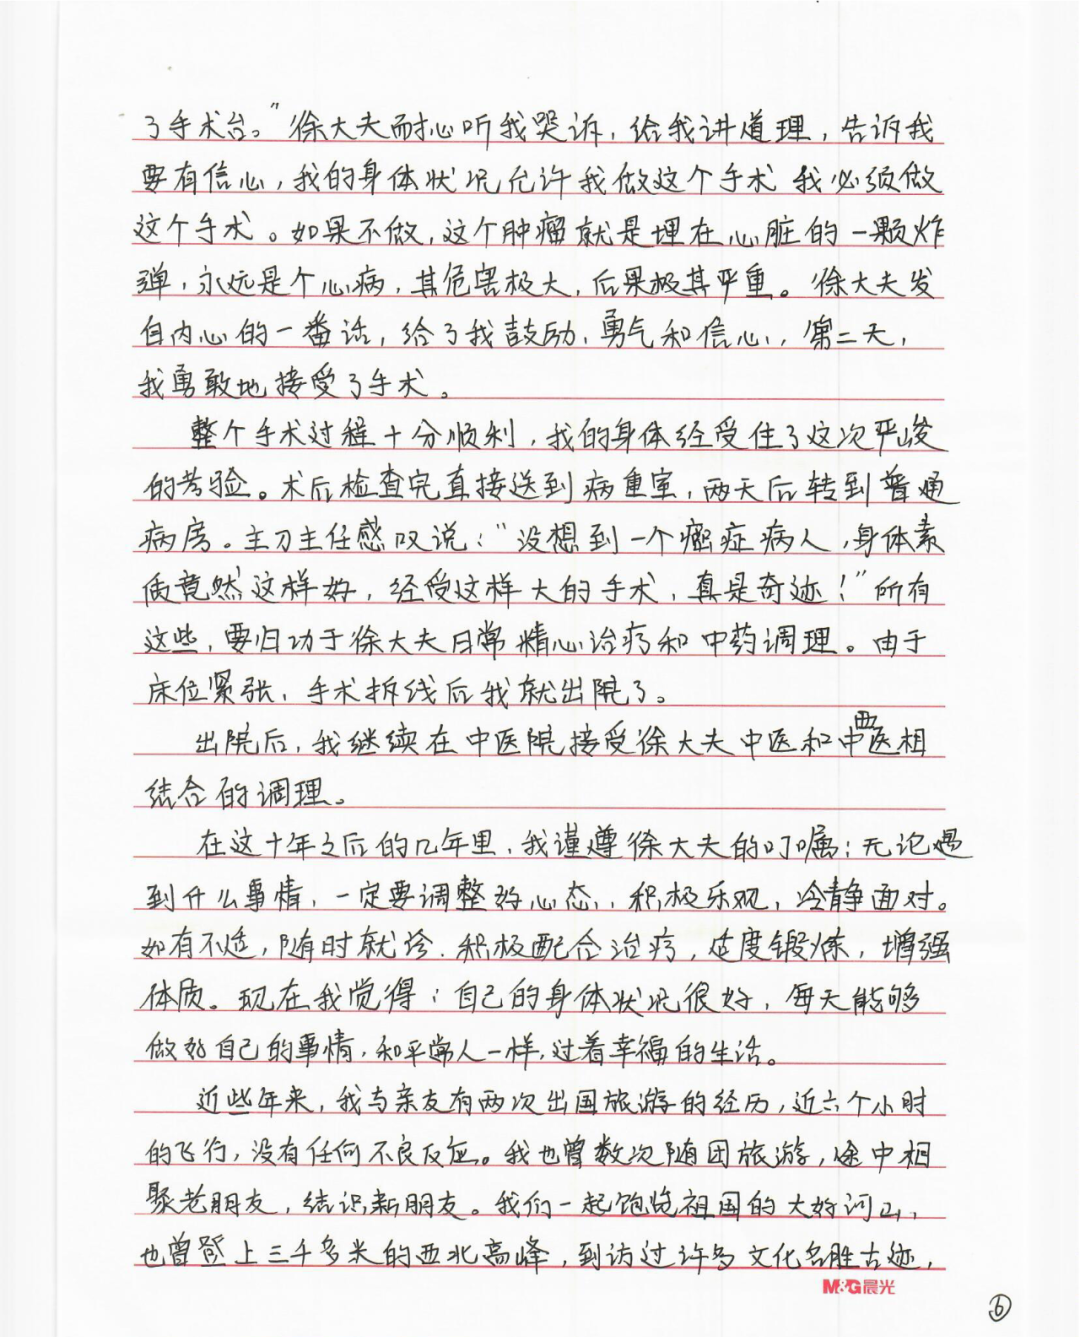 了手术台。”徐大夫耐心听我哭诉，给我讲道理，告诉我
要有信心，我的身体状况允许我做这个手术 我必须做
这个手术。如果不做，这个肿瘤就是埋在心脏的一颗炸
弹，永远是个心病，其危害极大，后果极其严重。徐大夫发
自内心的一番话，给了我鼓励，勇气和信心，第二天，
我勇敢地接受了手术。
整个手术过程十分顺利，我的身体经受住了这次严峻
的考验。术后检查完直接送到病重室，两天后转到普通
病房。主刀主任感叹说：“没想到一个癌症病人，身体素
质竟然这样好，经受这样大的手术，真是奇迹！”所有
这些，要归功于徐大夫日常精心治疗和中药调理。由于
床位紧张，手术拆线后我就出院了。
出院后，我继续在中医院接受徐大夫中医和中西医相
结合的调理。
在这十年之后的几年里，我谨遵徐大夫的叮嘱：无论遇
到什么事情，一定要调整好心态，积极乐观，冷静面对。
如有不适，随时就诊．积极配合治疗，适度锻炼，增强
体质。现在我觉得：自己的身体状况很好，每天能够
做好自己的事情，和平常人一样，过着幸福的生活。
近些年来，我与亲友有两次出国旅游的经历，近六个小时
的飞行，没有任何不良反应。我也曾数次随团旅游，途中相
聚老朋友，结识新朋友。我们一起饱览祖国的大好河山，
也曾登上三千多米的西北高峰，到访过许多文化名胜古迹，
M&G晨光
⑥